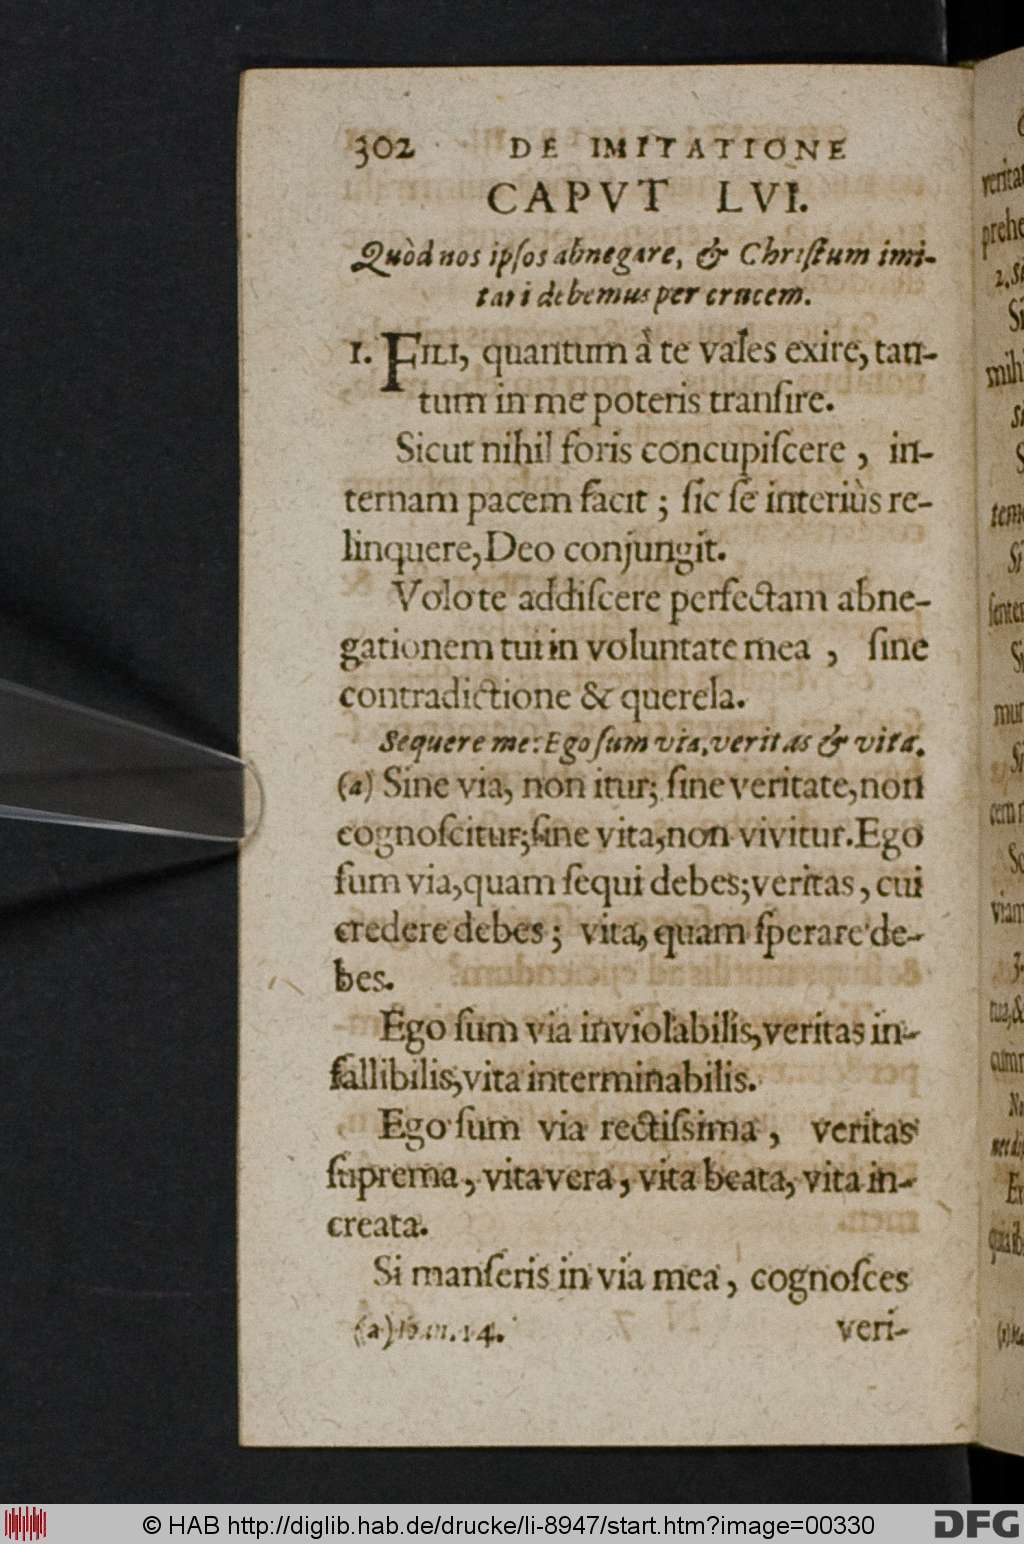 302 DE IMITATIONE
CAPVT LVI.
Quòd nos ipſos abnegare, & Chriſtum imi-
tari debemus per crucem.
1. FILI, quantum à te vales exire, tan-
tum in me poteris tranſire.
Sicut nihil foris concupiſcere, in-
ternam pacem facit; ſic ſe interiùs re-
linquere, Deo conjungit.
Volo te addiſcere perfectam abne-
gationem tui in voluntate mea, ſine
contradictione & querela.
Sequere me: Ego ſum via, veritas & vita.
(a) Sine via, non itur; ſine veritate, non
cognoſcitur; ſine vita, non vivitur. Ego
ſum via, quam ſequi debes; veritas, cui
credere debes; vita, quam ſperare de-
bes.
Ego ſum via inviolabilis, veritas in-
fallibilis, vita interminabilis.
Ego ſum via rectiſsima, veritas
ſuprema, vita vera, vita beata, vita in-
creata.
Si manſeris in via mea, cognoſces
(a) Ioan. 14. veri-
verita
prehe
2. Si
Si
mihi
S
tem
Si
ſenten
Si
mun
Si
viam
3.
tua, &
© HAB http://diglib.hab.de/drucke/li-8947/start.htm?image=00330
DFG